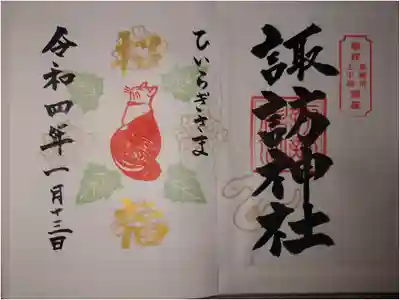 諏訪神社
ひいらぎさま
招
福
令和四年一月十三日